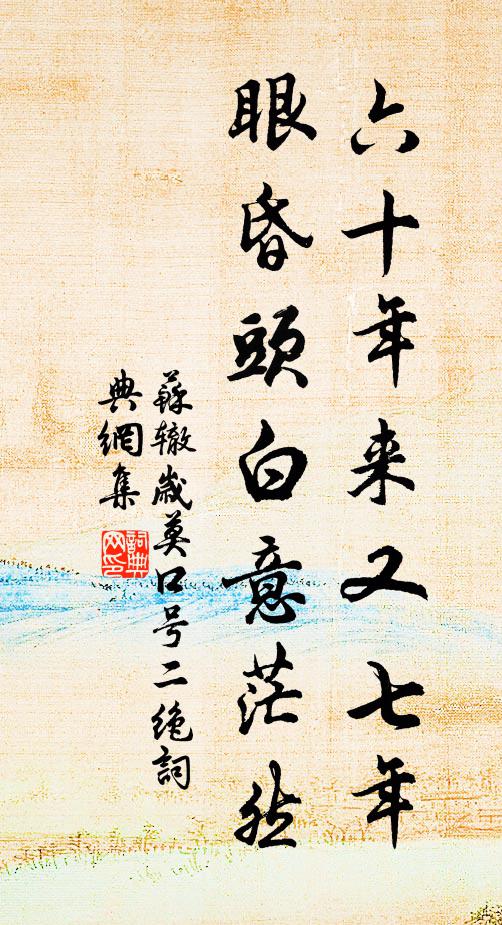 六十年来又七年
眼昏頭白意茫然
蘇辙歲莫口号二绝詞
典網集
詞典
网印